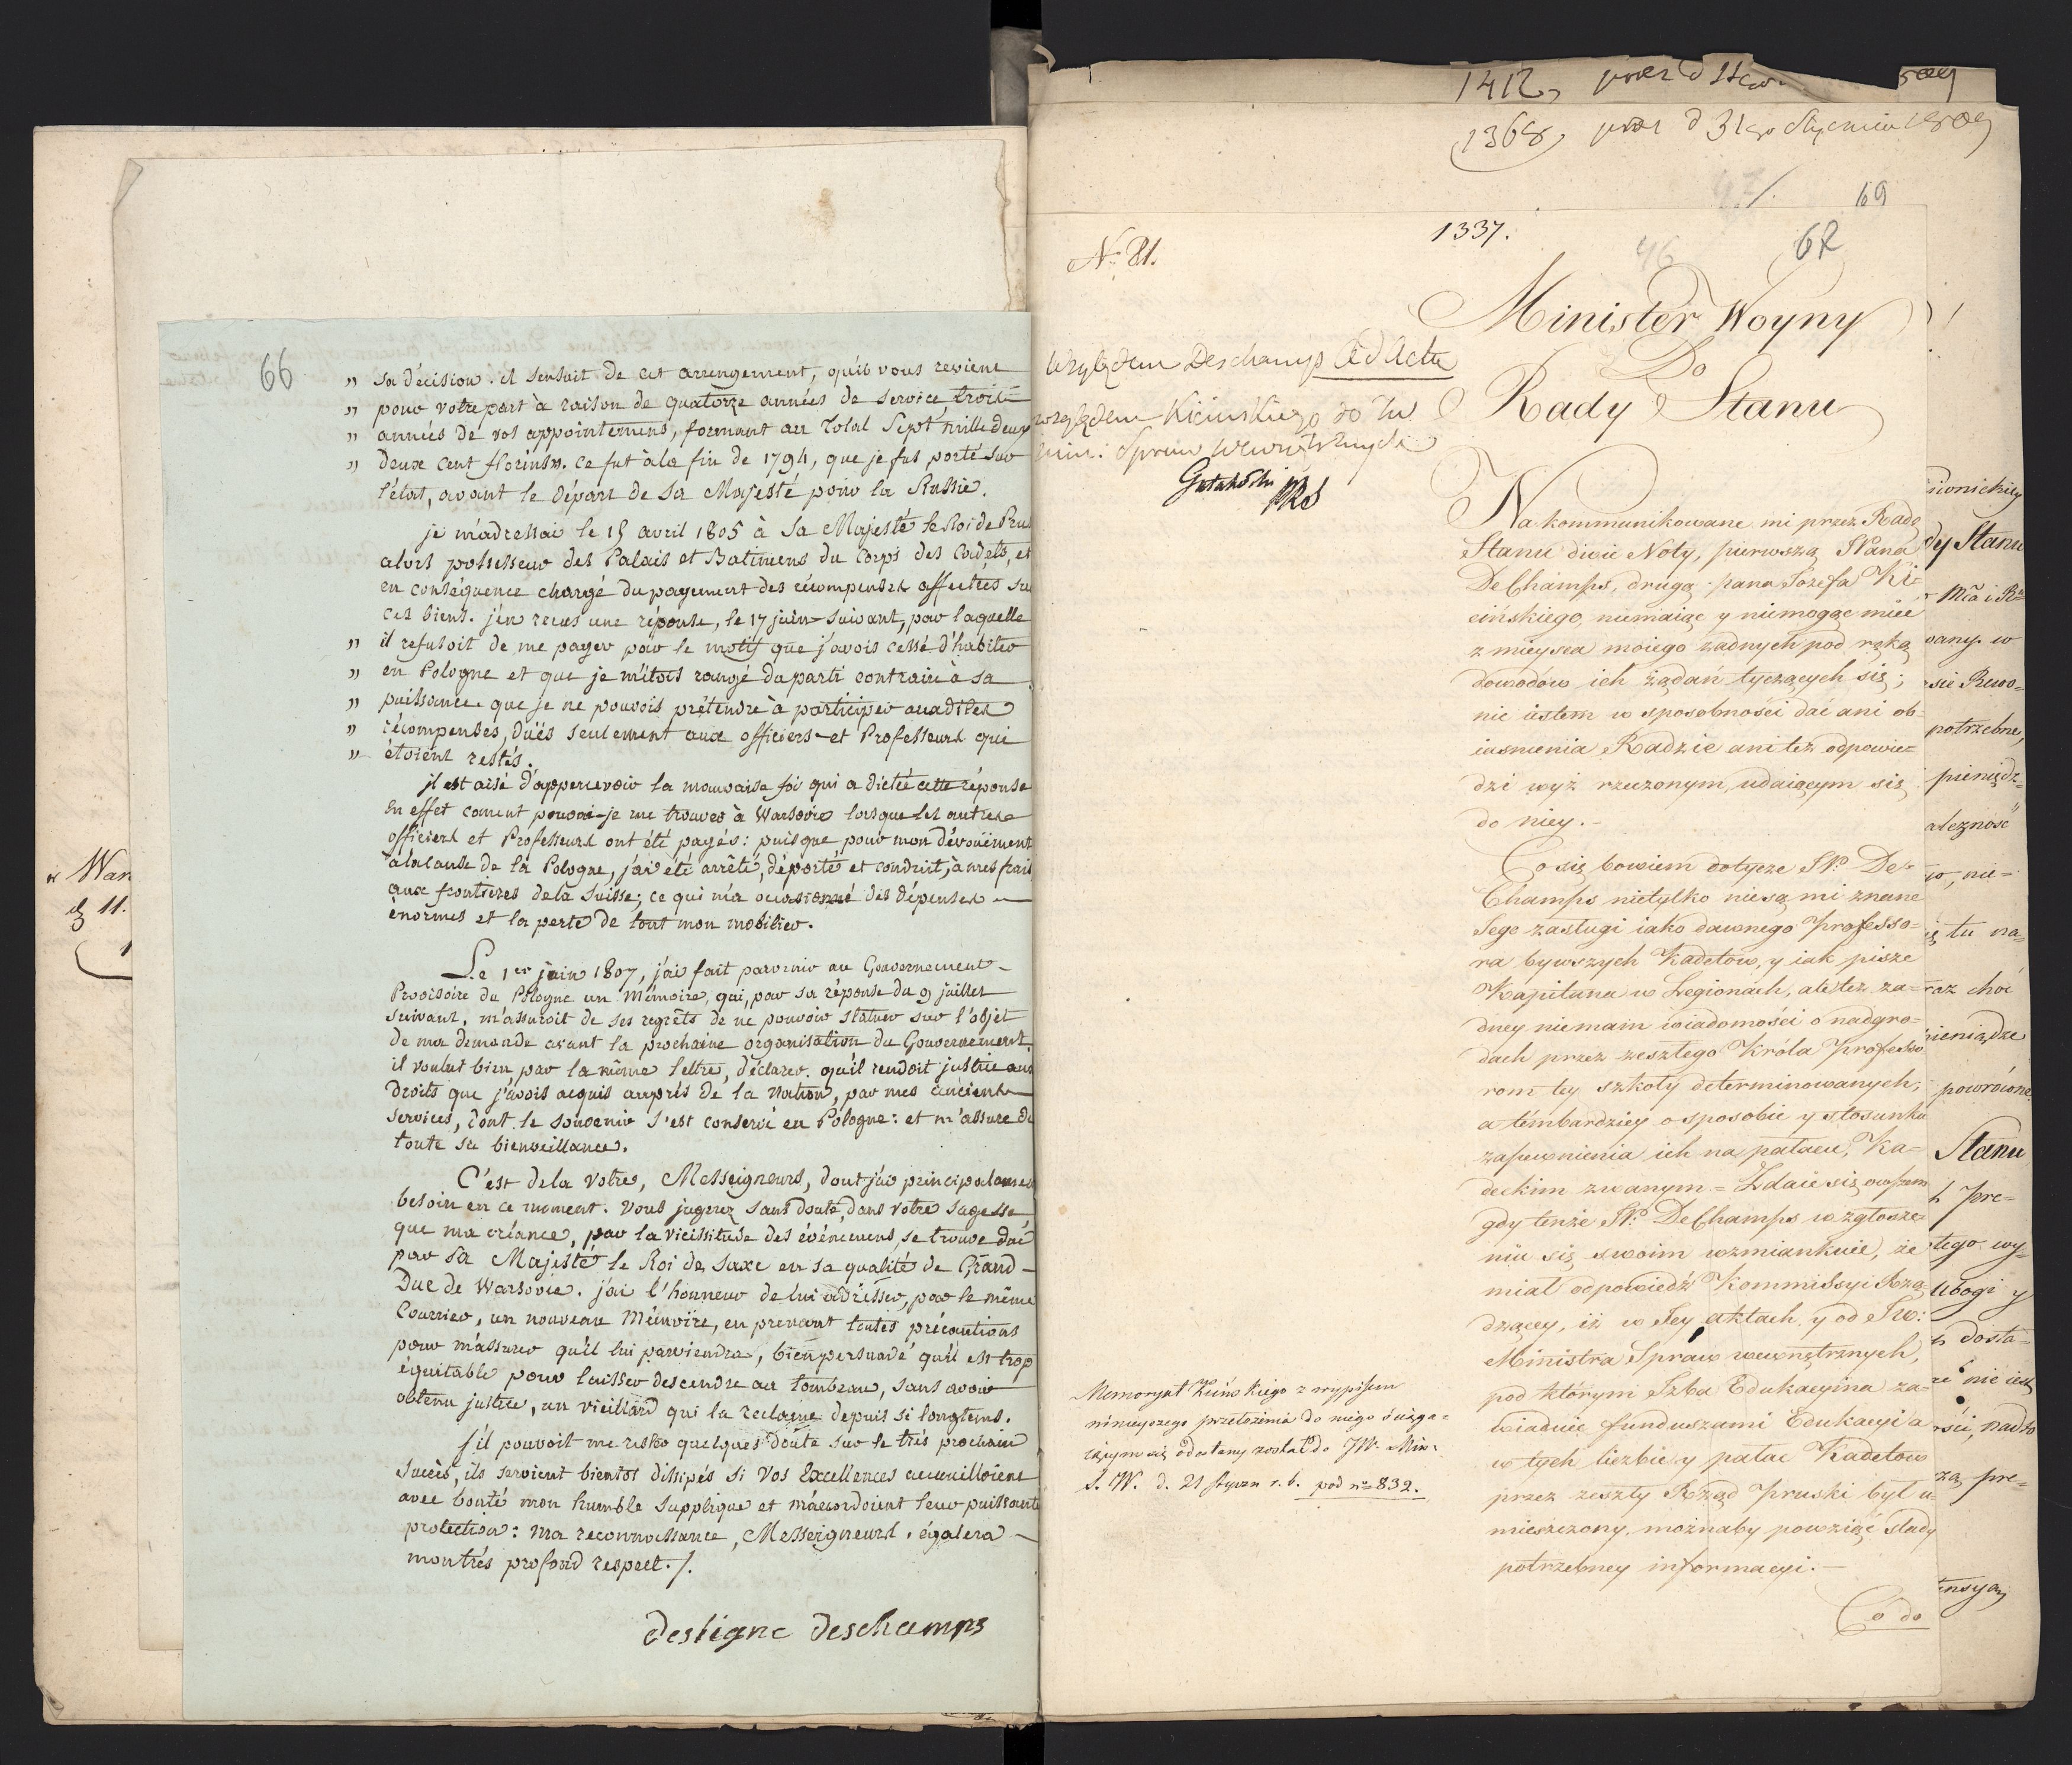 66
„ sa décision. il s'ensuit de cet arrengement, qu'il vous reviene
„ pour votre part à raison de quatorze années de service trois
„ années de vos appointemens, formant au Total Sept mille deux
„ deux cent florins„. Ce fut à la fin de 1794, que je fus porté sur
l'état, avant le départ de Sa Majesté pour la Russie.
je m'adressai le 15 avril 1805 à Sa Majesté le Roi de Pru
alors possesseur des Palais et Batimens du Corps des Cadets, et
en conséquence chargé du payement des récompenses affectées su
ces biens. j'en reçus une réponse, le 17 juin suivant, par laquelle
„ il refusoit de me payer par le motif que j'avois cessé d'habiter
„ en Pologne et que je m'étois rangé du parti contraire à sa
„ puissance. que je ne pouvois prétendre à participer auxdites
„ récompenses, dües seulement aux officiers et Professeurs qui
„ étoient restés.
il est aisé d'appercevoir la mauvaise foi qui a dictée cette réponse
En effet coment pouvoi-je me trouver à Warsovie lorsque les autres
officiers et Professeurs ont été payés: puisque pour mon dévouëment
à la cause de la Pologne, j'ai été arrêté, déporté et conduit, à mes frais
aux frontières de la Suisse; ce qui m'a occasionné des dépenses
énormes et la perte de tout mon mobilier.
Le 1er juin 1807, j'ai fait parvenir au Gouvernement
Provisoire du Pologne un Mémoire, qui, par sa réponse du 9 juillet
suivant, m'assuroit de ses regrêts de ne pouvoir statuer sur l'objet
de ma demande avant la prochaine organisation du Gouvernement.
il voulut bien par la même lettre, déclarer qu'il rendoit justice aux
droits que j'avois acquis auprès de la Nation, par mes anciens
services, dont le souvenir s'est conservé en Pologne: et m'assure de
toute sa bienveillance.
C'est de la Votre, Messeigneurs, dont j'ai principalement
besoin en ce moment. Vous jugerez sans doute, dans votre sagesse,
que ma créance, par la vicissitude des événemens, se trouve düe
par Sa Majesté le Roi de Saxe en sa qualité de Grand
Duc de Warsovie. j'ai l'honneur de lui adresser, par le même
Courrier, un nouveau Mémoire, en prenant toutes précautions
pour m'assurer qu'il lui parviendra, bien persuadé qu'il est trop
équitable pour laisser descendre au tombeau, sans avoir
obtenu justice, un vieillard qui la reclame depuis si longtems.
S'il pouvoit me rester quelques doute sur le très prochain
succès, ils seroient bientot dissipés si Vos Excellences accueilloient
avec bonté mon humble supplique et m'accordoient leur puissante
protection: ma reconnoissance, Messeigneurs, égalera
mon très profond respect./.
desligne deschamps
Wan
11.
1412,
1368, prez d 31go Stycznia 1809
69
1337.
46
62
No 81.
Względem Deschamps ad Acta
względem Kicińskiego do Tu
Min: Spraw Wewnętrznych
Gutakowski
PRS
Minister Woyny
Do
Rady Stanu
Na kommunikowane mi przez Radę
Stanu dwie Noty, pierwszą JPana
DeChamps, drugą pana Jozefa Ki=
cińskiego, niemaiąc y niemogąc mieć
z mieysca moiego żadnych pod ręką
dowodów ich żądań tyczących się;
nie iestem w sposobności dać ani ob=
iaśnienia Radzie ani też odpowie=
dzi wyż rzeczonym, udaiącym się
do niey.-
Co się bowiem dotycze JP: De=
Champs nietylko niesą mi znane
Jego zasługi iako dawnego Professo=
ra bywszych Kadetów, y iak pisze
Kapitana w Legionach, ale też ża=
dney niemam wiadomości o nadgro=
dach przez zeszłego Króla Professo
rom tey szkoły determinowanych;
a témbardziey o sposobie y stosunku
zapewnienia ich na pałacu, Ka=
deckim zwanym = Zdaie się owszem
gdy tenże JP: DeChamps w zgłosze=
niu się swoim wzmiankuie, że
miał odpowiedź Kommissyi Rzą=
dzącey, iż w Jey aktach y od JW:
Ministra Spraw wewnętrznych,
pod którym Izba Edukacyina za=
wiaduie funduszami Edukacyi a
w tych liczbie y pałac Kadetów
przez zeszły Rząd Pruski był u=
mieszczony, możnaby powziąć ślady
potrzebney informacyi.-
Co do
Memoryał Kicińskiego z wypisem
ninieyszego przełożenia do niego ściąga=
iącym się odesłany został do JW. Min:
S. W. d. 21 Stycz: r. b. pod nro 832.
dy Stanu
wany. w
potrzebne,
pieniądz=
ależność
w, nie=
ię tu na=
raz choć
pieniądze
powrócone.
Stanu
tego wy=
ubogi y
dosta=
że nie iest
ści, nadto
zą pre=
tensyą